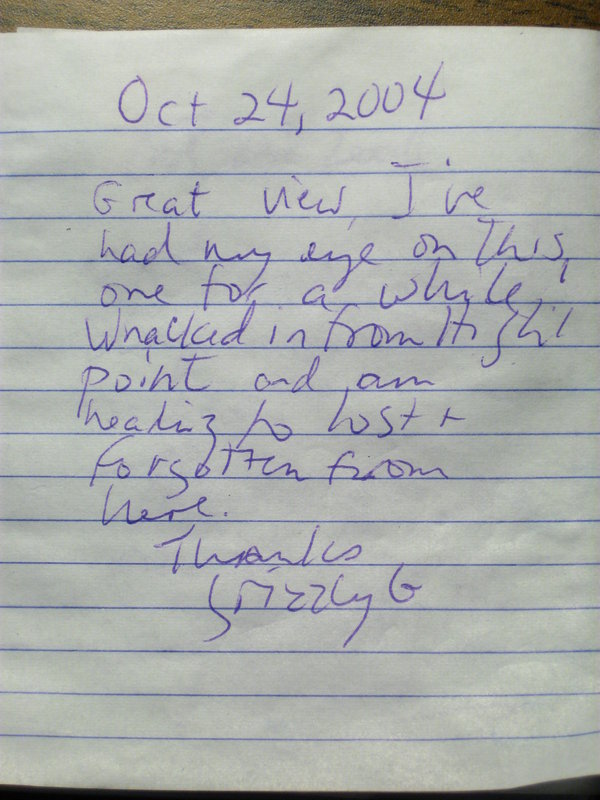 Oct 24, 2004
Great view, I've
had my eye on this
one for a while,
Whacked in from High
point and am
heading to Lost +
Forgotten from
here.
Thanks
Grizzly G